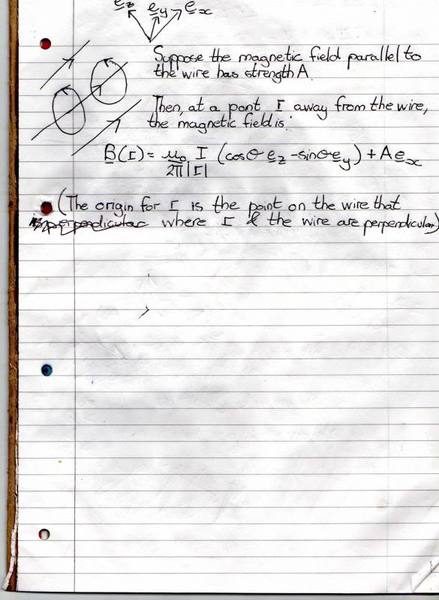 e_z e_y e_x
Suppose the magnetic field parallel to
the wire has strength A.
Then, at a point r away from the wire,
the magnetic field is:
B(r) = μ₀/2π I/|r| (cosθ e_z - sinθ e_y) + A e_x
(The origin for r is the point on the wire that
is perpendicular where r & the wire are perpendicular)